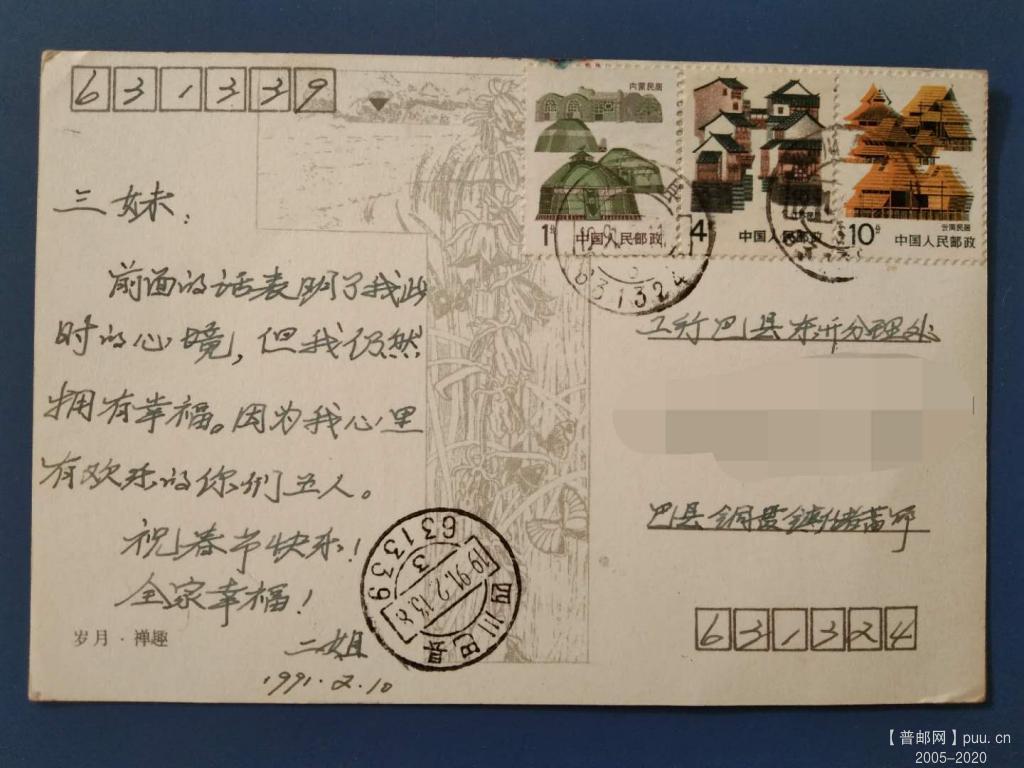 631339
内蒙民居
1分 中国人民邮政
4分 中国人民邮政
云南民居
10分 中国人民邮政
631324
三妹:
前面的话表明了我此
时的心境,但我仍然
拥有幸福。因为我心里
有欢乐的你们五人。
祝春节快乐!
全家幸福!
二姐
1991.2.10
岁月·禅趣
工行巴县东泉分理处
巴县铜罐镇储蓄所
631324
四川巴县
631339
【普邮网】puu.cn
2005-2020